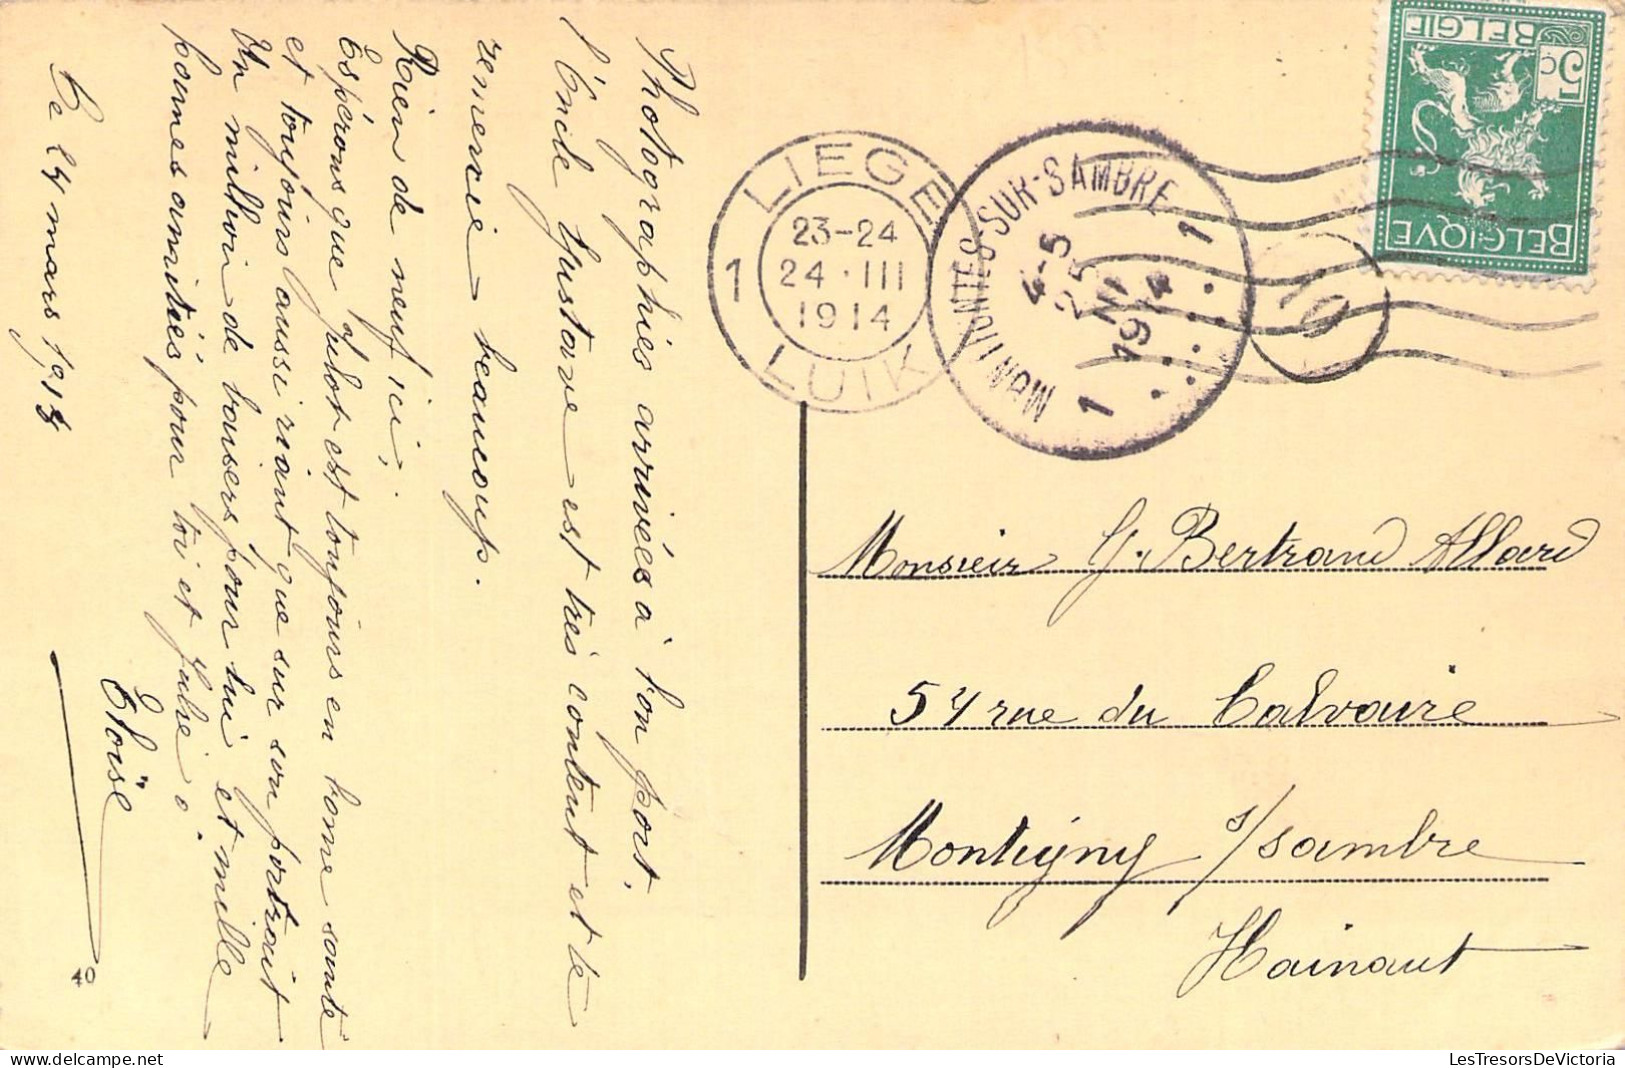 Photographies arrivées à bon port.
l'Oncle Gustave est très content et te
remercie beaucoup.
Rien de neuf ici.
Espérons que Julot est toujours en bonne santé
et toujours aussi riant que sur son portrait
Un million de baisers pour lui et mille
bonnes amitiés pour toi et Julie.
Eloïse
Ce 24 mars 1914
40
LIEGE
1
23-24
24 · III
1914
LUIK
MONTIGNIES-SUR-SAMBRE
1
4-5
25
III
1914
1
10
BELGIE
5c
BELGIQVE
Monsieur G. Bertrand Allard
54 rue du Calvaire
Montigny s/sambre
Hainaut
LesTresorsDeVictoria